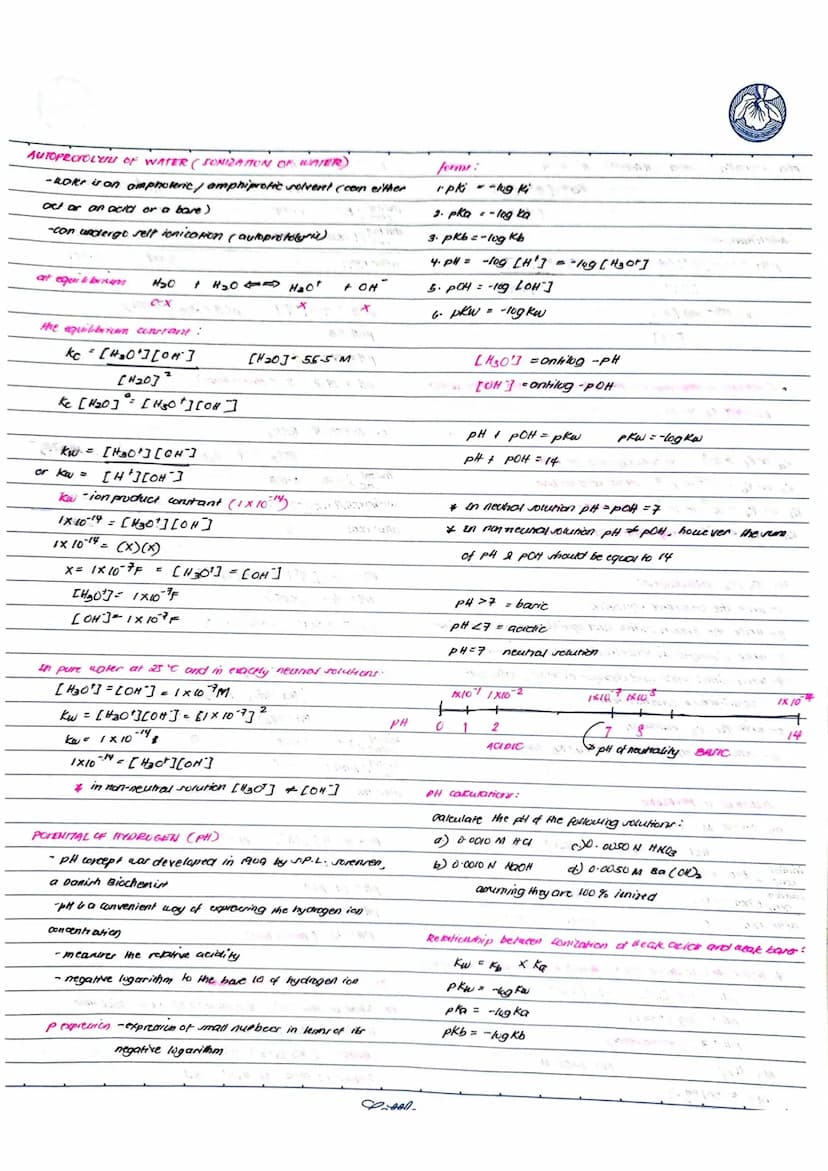 AUTOPROTOLYSIS OF WATER (IONIZATION OF WATER)
- water is an amphoteric / amphiprotic solvent (can either
act as an acid or a base)
- can undergo self ionization (autoprotolysis)
at equilibrium H2O + H2O ⟺ H3O⁺ + OH⁻
c-x x x
the equilibrium constant :
Kc = [H3O⁺][OH⁻] [H2O] = 55.5 M
[H2O]²
Kc [H2O]² = [H3O⁺][OH⁻]
∴ Kw = [H3O⁺][OH⁻]
or Kw = [H⁺][OH⁻]
Kw - ion product constant (1 x 10⁻¹⁴)
1x10⁻¹⁴ = [H3O⁺][OH⁻]
1x 10⁻¹⁴ = (x)(x)
x = 1x10⁻⁷F = [H3O⁺] = [OH⁻]
[H3O⁺] = 1x10⁻⁷F
[OH⁻] = 1x10⁻⁷F
In pure water at 25 °C and in exactly neutral solutions:
[H3O⁺] = [OH⁻] = 1x10⁻⁷M
Kw = [H3O⁺][OH⁻] = [1x10⁻⁷]²
Kw = 1x10⁻¹⁴
1x10⁻¹⁴ = [H3O⁺][OH⁻]
* in non-neutral solution [H3O⁺] ≠ [OH⁻]
POTENTIAL OF HYDROGEN (PH)
- pH concept was developed in 1909 by S.P.L. Sorensen,
a Danish Biochemist
- pH is a convenient way of expressing the hydrogen ion
concentration
- measures the relative acidity
- negative logarithm to the base 10 of hydrogen ion
p expression - expression of small numbers in terms of its
negative logarithm
forms :
1. pKi = -log Ki
2. pKa = -log Ka
3. pKb = -log Kb
4. pH = -log [H⁺] = -log [H3O⁺]
5. pOH = -log [OH⁻]
6. pKw = -log Kw
[H3O⁺] = antilog -pH
[OH⁻] = antilog -pOH
pH + pOH = pKw pKw = -log Kw
pH + pOH = 14
* In neutral solution pH = pOH = 7
* In nonneutral solution pH ≠ pOH, however the sum
of pH & pOH should be equal to 14
pH > 7 = basic
pH < 7 = acidic
pH = 7 neutral solution
1x10⁻¹ 1x10⁻² 1x10⁻⁷ 1x10⁻⁸ 1x10⁻¹⁴
PH 0 1 2 7 8 14
ACIDIC pH of neutrality BASIC
PH calculations:
calculate the pH of the following solutions :
a) 0.0010 M HCl c) 0.0050 N HNO3
b) 0.0010 N NaOH d) 0.0050 M Ba(OH)2
assuming they are 100% ionized
Relationship between Ionization of weak acids and weak bases :
Kw = Kb x Ka
pKw = -log Kw
pKa = -log Ka
pKb = -log Kb